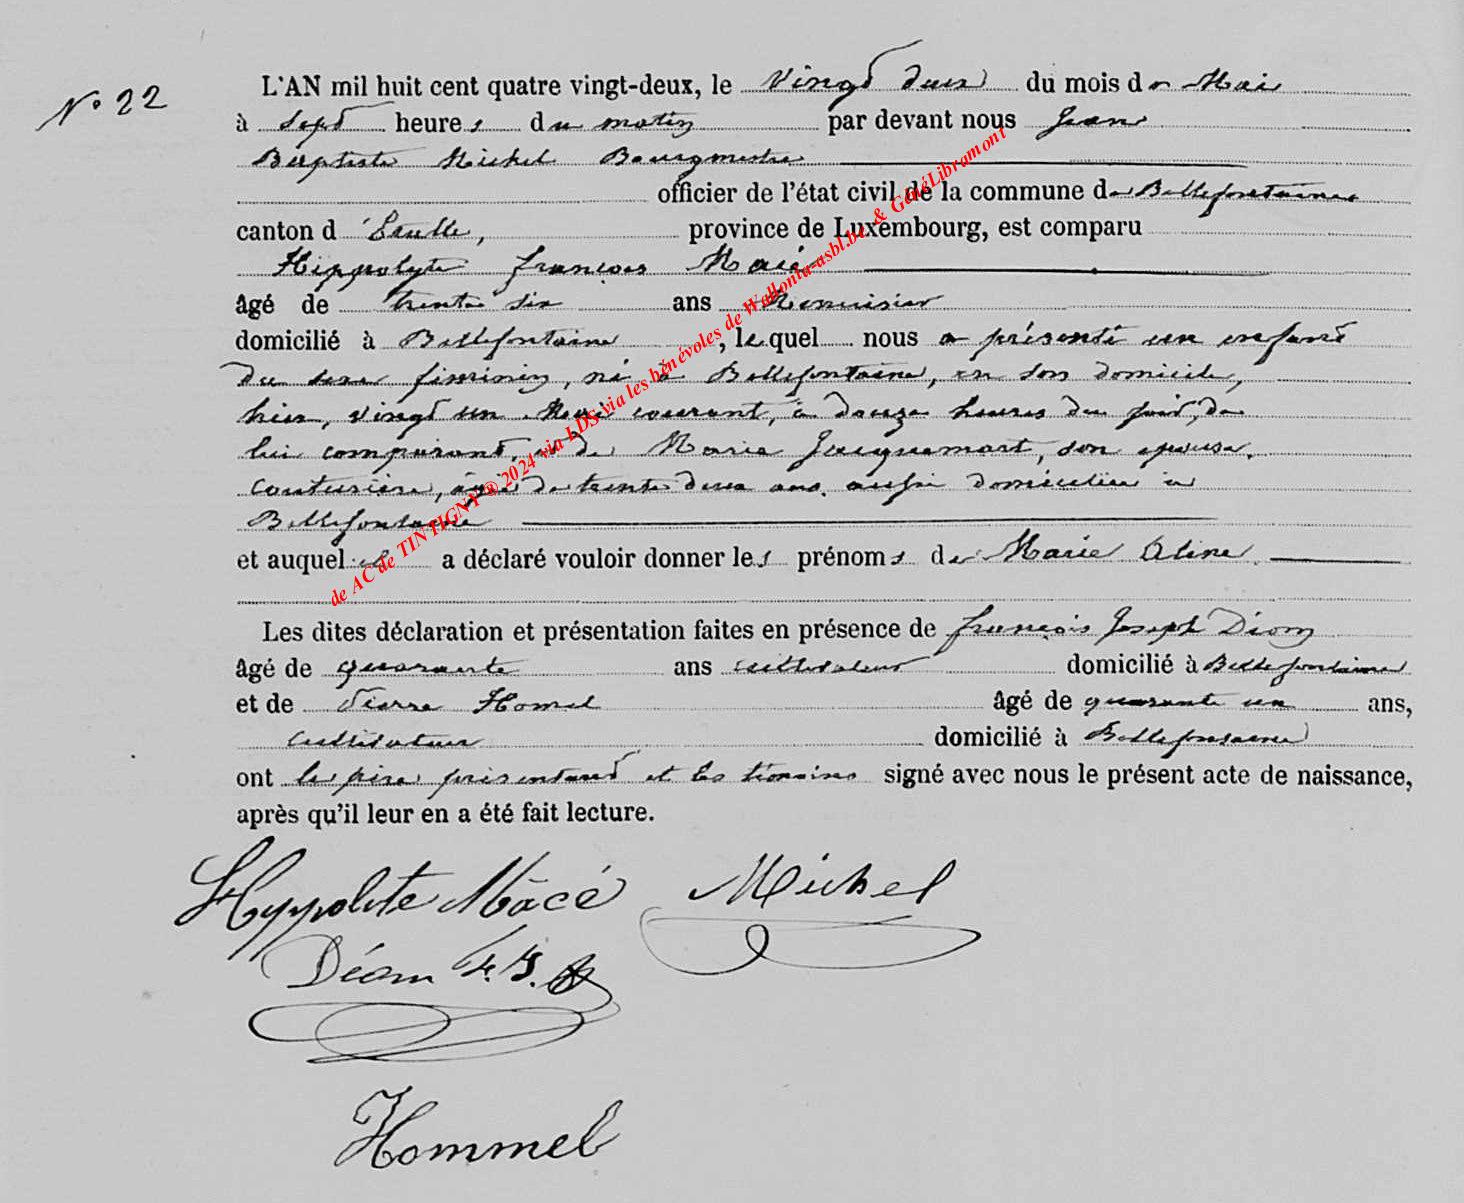 N° 22
L'AN mil huit cent quatre vingt-deux, le Vingt deux du mois de Mai
à Sept heures du matin par devant nous Jean
Baptiste Michel Bourgmestre
officier de l'état civil de la commune de Bellefontaine
canton d'Etalle, province de Luxembourg, est comparu
Hippolyte françois Macé
âgé de trente six ans Menuisier
domicilié à Bellefontaine, lequel nous a présenté un enfant
du sexe féminin, né à Bellefontaine, en son domicile,
hier, vingt un Mai courant, à douze heures du soir, de
lui comparant, et de Marie Jacquemart, son épouse,
couturière, âgée de trente deux ans, aussi domiciliée à
Bellefontaine
et auquel il a déclaré vouloir donner les prénoms de Marie Aline
Les dites déclaration et présentation faites en présence de françois Joseph Déom
âgé de quarante ans cultivateur domicilié à Bellefontaine
et de Pierre Homel âgé de quarante un ans,
cultivateur domicilié à Bellefontaine
ont le père présentant et les témoins signé avec nous le présent acte de naissance,
après qu'il leur en a été fait lecture.
Hyppolite Mâcé Michel
Déom f. J.
Hommel
de AC de TINTIGNY © 2024 via LDS via les bénévoles de Wallonia-asbl.be & GénéLibramont